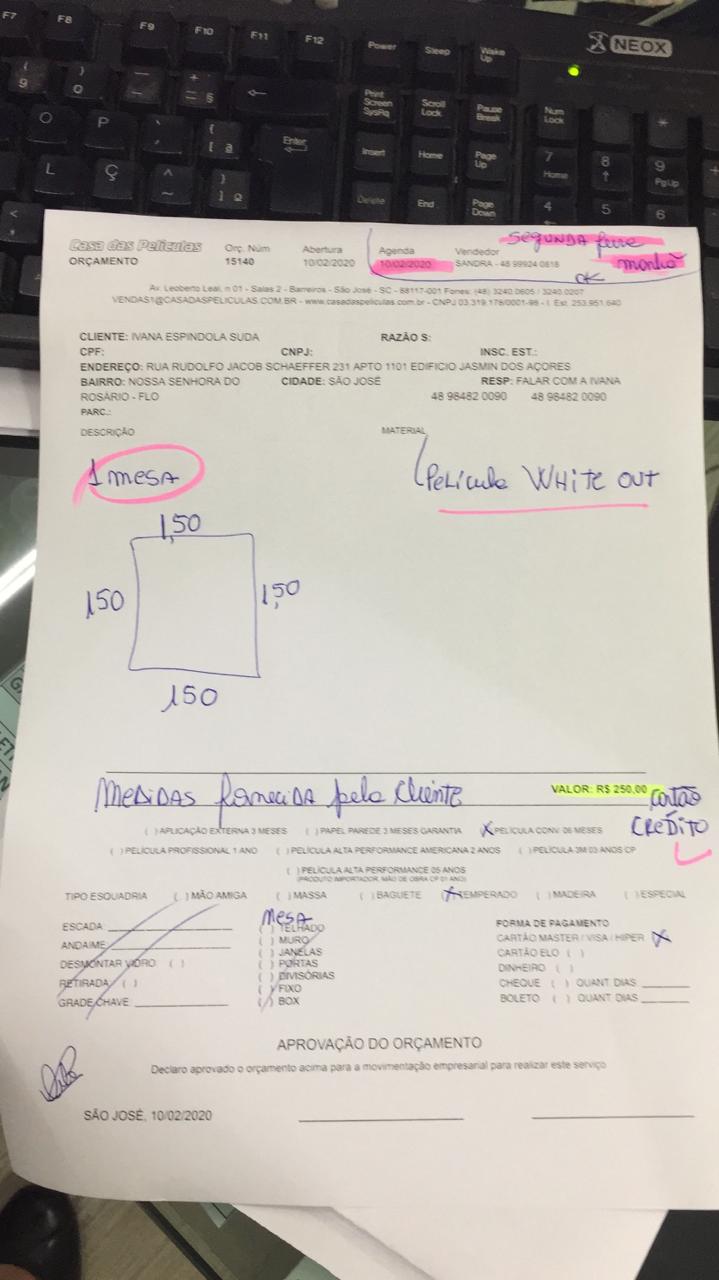 F7 F8 F9 F10 F11 F12 Power Sleep Wake Up
NEOX
Print Screen SysRq Scroll Lock Pause Break Num Lock
O P Enter Insert Home Page Up 7 Home 8 9 PgUp
L Ç Delete End Page Down 4 5 6
Casa das Películas
ORÇAMENTO
Orç. Núm
15140
Abertura
10/02/2020
Agenda
10/02/2020
Vendedor
SANDRA - 48 99924 0818
SEGUNDA feira
manhã
OK
Av. Leoberto Leal, n 01 - Salas 2 - Barreiros - São José - SC - 88117-001 Fones: (48) 3240.0605 / 3240.0207
VENDAS1@CASADASPELICULAS.COM.BR - www.casadaspeliculas.com.br - CNPJ 03.319.178/0001-98 - I. Est. 253.951.640
CLIENTE: IVANA ESPINDOLA SUDA RAZÃO S:
CPF: CNPJ: INSC. EST.:
ENDEREÇO: RUA RUDOLFO JACOB SCHAEFFER 231 APTO 1101 EDIFICIO JASMIN DOS AÇORES
BAIRRO: NOSSA SENHORA DO CIDADE: SÃO JOSÉ RESP: FALAR COM A IVANA
ROSÁRIO - FLO 48 98482 0090 48 98482 0090
PARC.:
DESCRIÇÃO MATERIAL
1 MESA Película WHITE OUT
1,50
150 1,50
150
MEDIDAS fornecida pelo Cliente
VALOR: R$ 250,00 Cartão
CREDITO
( ) APLICAÇÃO EXTERNA 3 MESES ( ) PAPEL PAREDE 3 MESES GARANTIA (X) PELÍCULA CONV. 06 MESES
( ) PELÍCULA PROFISSIONAL 1 ANO ( ) PELÍCULA ALTA PERFORMANCE AMERICANA 2 ANOS ( ) PELÍCULA 3M 03 ANOS CP
( ) PELÍCULA ALTA PERFORMANCE 05 ANOS
(PRODUTO IMPORTADOR, MÃO DE OBRA CP 01 ANO)
TIPO ESQUADRIA ( ) MÃO AMIGA ( ) MASSA ( ) BAGUETE (X) TEMPERADO ( ) MADEIRA ( ) ESPECIAL
ESCADA
ANDAIME
DESMONTAR VIDRO ( )
RETIRADA ( )
GRADE CHAVE
MESA
( ) TELHADO
( ) MURO
( ) JANELAS
( ) PORTAS
( ) DIVISÓRIAS
( ) FIXO
( ) BOX
FORMA DE PAGAMENTO
CARTÃO MASTER / VISA / HIPER X
CARTÃO ELO ( )
DINHEIRO ( )
CHEQUE ( ) QUANT. DIAS
BOLETO ( ) QUANT. DIAS
APROVAÇÃO DO ORÇAMENTO
Declaro aprovado o orçamento acima para a movimentação empresarial para realizar este serviço
SÃO JOSÉ, 10/02/2020